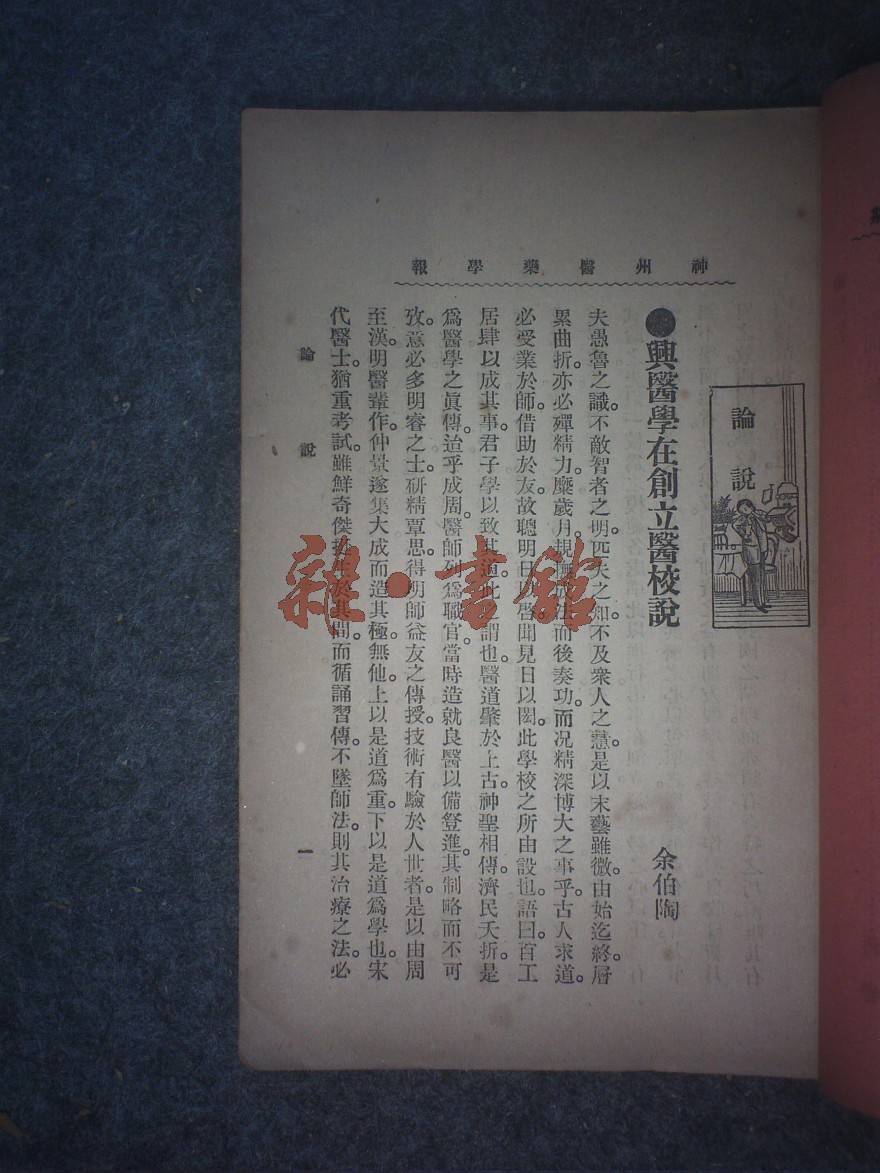 神州醫藥學報
論說
●興醫學在創立醫校說
余伯陶
夫愚魯之識。不敵智者之明。匹夫之知。不及衆人之慧。是以末藝雖微。由始迄終。層
累曲折。亦必殫精力。糜歲月。規 法。而後奏功。而况精深博大之事乎。古人求道。
必受業於師。借助於友。故聰明日以啓。聞見日以閎。此學校之所由設也。語曰。百工
居肆以成其事。君子學以致其道。此之謂也。醫道肇於上古。神聖相傳。濟民夭折。是
爲醫學之眞傳。迨乎成周。醫師列爲職官。當時造就良醫。以備登進。其制略而不可
攷。意必多明睿之士。研精覃思。得明師益友之傳授。技術有驗於人世者。是以由周
至漢。明醫輩作。仲景遂集大成而造其極。無他。上以是道爲重。下以是道爲學也。宋
代醫士。猶重考試。雖鮮奇傑 生於其間。而循誦習傳。不墜師法。則其治療之法。必
論說
一
雜·書館